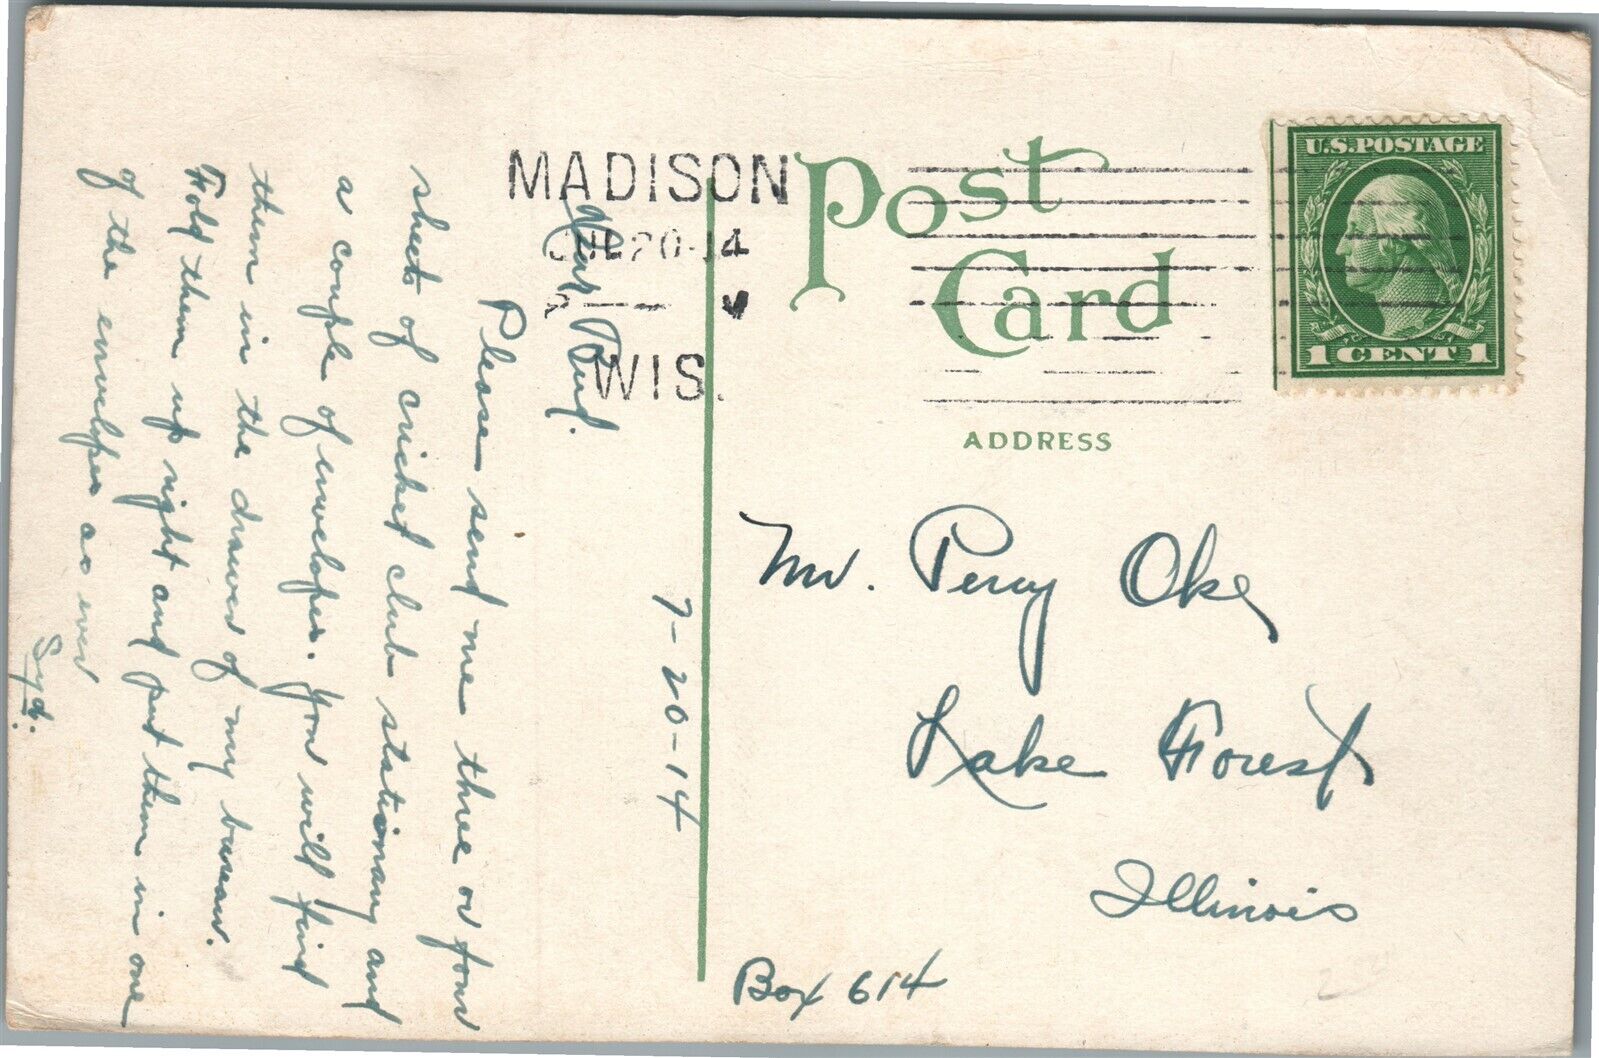 MADISON
JUL 20 14
WIS.
Post
Card
U.S. POSTAGE
1 CENT 1
ADDRESS
Mr. Percy Oke
Lake Forest
Illinois
Box 614
7-20-14
Dear Bud.
Please send me three or four
sheets of cricket club stationary and
a couple of envelopes. You will find
them in the drawer of my bureau.
Fold them up right and put them in one
of the envelopes as ever
Syd.